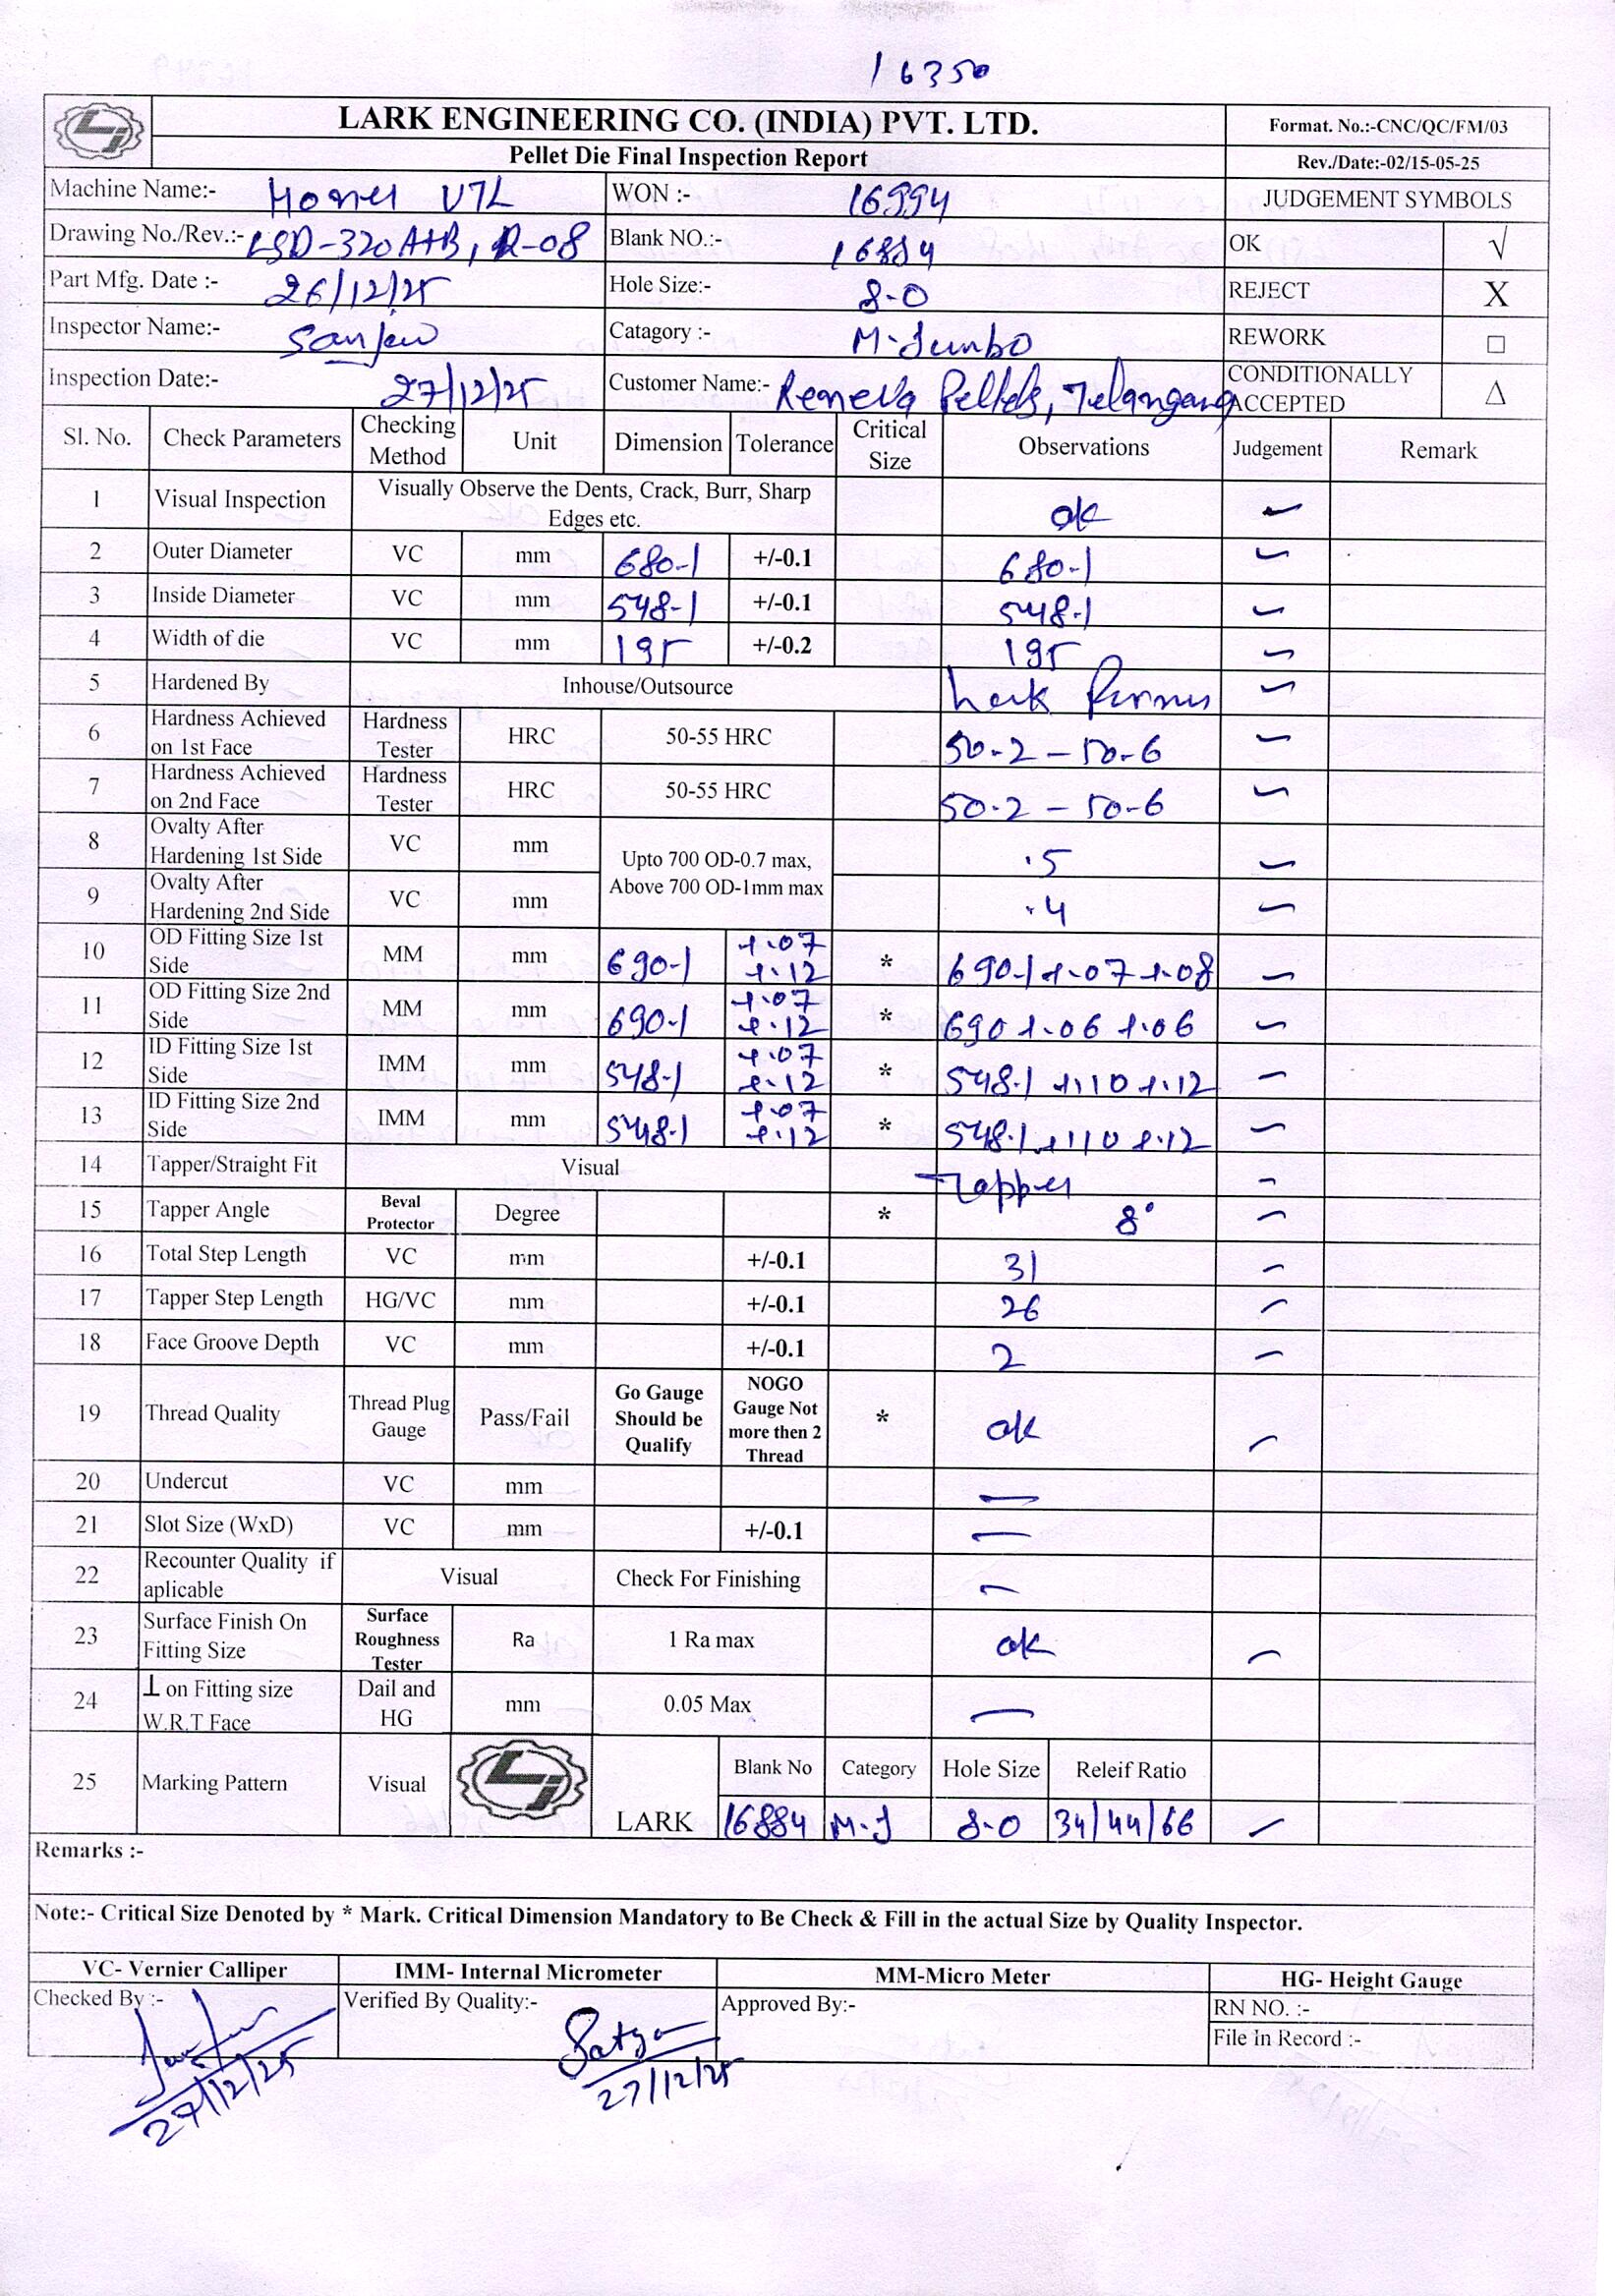 16350
LARK ENGINEERING CO. (INDIA) PVT. LTD.
Format. No.:-CNC/QC/FM/03
Pellet Die Final Inspection Report
Rev./Date:-02/15-05-25
Machine Name:- VTL WON :- 16994 JUDGEMENT SYMBOLS
Drawing No./Rev.:- LSD-320 A+B, R-08 Blank NO.:- 16884 OK √
Part Mfg. Date :- 26/12/25 Hole Size:- 8-0 REJECT X
Inspector Name:- Sanjeev Catagory :- M-Jumbo REWORK □
Inspection Date:- 27/12/25 Customer Name:- Pellets, Telangana CONDITIONALLY ACCEPTED Δ
Sl. No. Check Parameters Checking Method Unit Dimension Tolerance Critical Size Observations Judgement Remark
1 Visual Inspection Visually Observe the Dents, Crack, Burr, Sharp Edges etc. ok
2 Outer Diameter VC mm 680-1 +/-0.1 680-1
3 Inside Diameter VC mm 548-1 +/-0.1 548-1
4 Width of die VC mm 195 +/-0.2 195
5 Hardened By Inhouse/Outsource Lark
6 Hardness Achieved on 1st Face Hardness Tester HRC 50-55 HRC 50-2 – 50-6
7 Hardness Achieved on 2nd Face Hardness Tester HRC 50-55 HRC 50-2 – 50-6
8 Ovalty After Hardening 1st Side VC mm Upto 700 OD-0.7 max, Above 700 OD-1mm max .5
9 Ovalty After Hardening 2nd Side VC mm .4
10 OD Fitting Size 1st Side MM mm 690-1 +.07 +.12 * 690-1 +.07 +.08
11 OD Fitting Size 2nd Side MM mm 690-1 +.07 +.12 * 690 +.06 +.06
12 ID Fitting Size 1st Side IMM mm 548-1 +.07 +.12 * 548.1 +.10 +.12
13 ID Fitting Size 2nd Side IMM mm 548-1 +.07 +.12 * 548.1 +.10 +.12
14 Tapper/Straight Fit Visual Tapper
15 Tapper Angle Beval Protector Degree * 8°
16 Total Step Length VC mm +/-0.1 31
17 Tapper Step Length HG/VC mm +/-0.1 26
18 Face Groove Depth VC mm +/-0.1 2
19 Thread Quality Thread Plug Gauge Pass/Fail Go Gauge Should be Qualify NOGO Gauge Not more then 2 Thread * ok
20 Undercut VC mm —
21 Slot Size (WxD) VC mm +/-0.1 —
22 Recounter Quality if aplicable Visual Check For Finishing —
23 Surface Finish On Fitting Size Surface Roughness Tester Ra 1 Ra max ok
24 ⊥ on Fitting size W.R.T Face Dail and HG mm 0.05 Max —
25 Marking Pattern Visual LARK Blank No Category Hole Size Releif Ratio
16884 M-J 8-0 34/44/66
Remarks :-
Note:- Critical Size Denoted by * Mark. Critical Dimension Mandatory to Be Check & Fill in the actual Size by Quality Inspector.
VC- Vernier Calliper IMM- Internal Micrometer MM-Micro Meter HG- Height Gauge
Checked By :- Verified By Quality:- Approved By:- RN NO. :-
File In Record :-
Satya
27/12/25 27/12/25